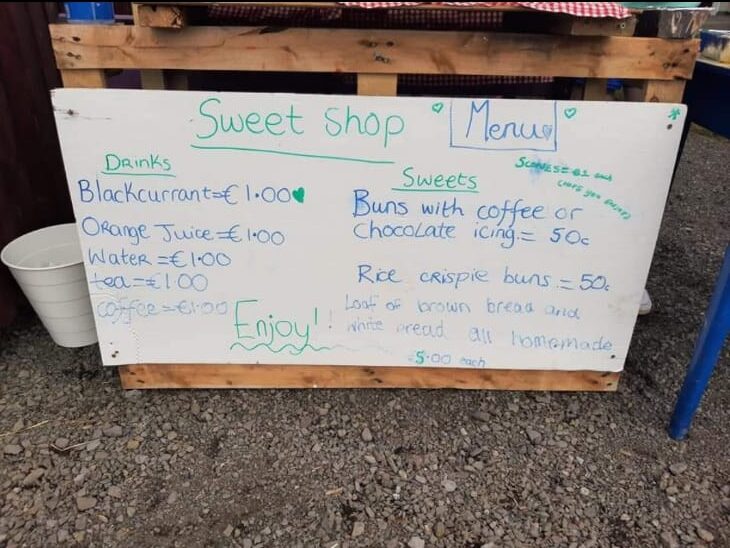 Sweet Shop
Menu
DRINKS
Blackcurrant=€1.00
Orange Juice=€1.00
Water=€1.00
tea=€1.00
coffee=€1.00
Enjoy!
Scones=€1 each
Sweets
Buns with coffee or
chocolate icing= 50c
Rice crispie buns = 50c
Loaf of brown bread and
white bread all homemade
€5.00 each